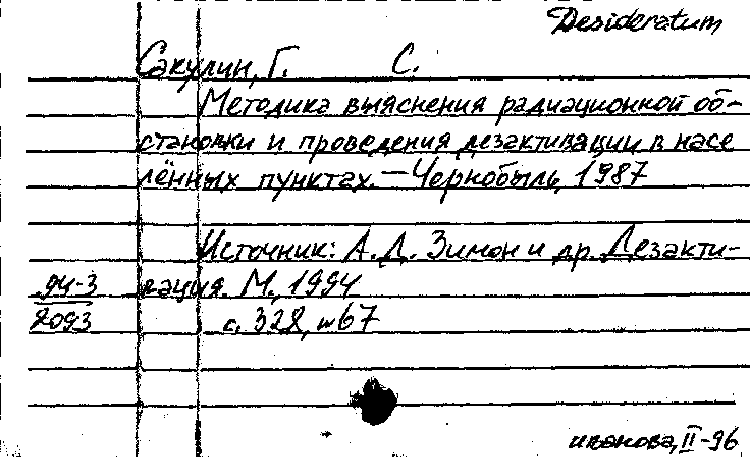 Desideratum
Сакулин, Г. С.
Методика выяснения радиационной об-
становки и проведения дезактивации в насе
лённых пунктах. — Чернобыль, 1987
Источник: А. Д. Зимон и др. Дезакти-
94-3 вация. М., 1994
2093 с. 328, №67
иванова, II-96